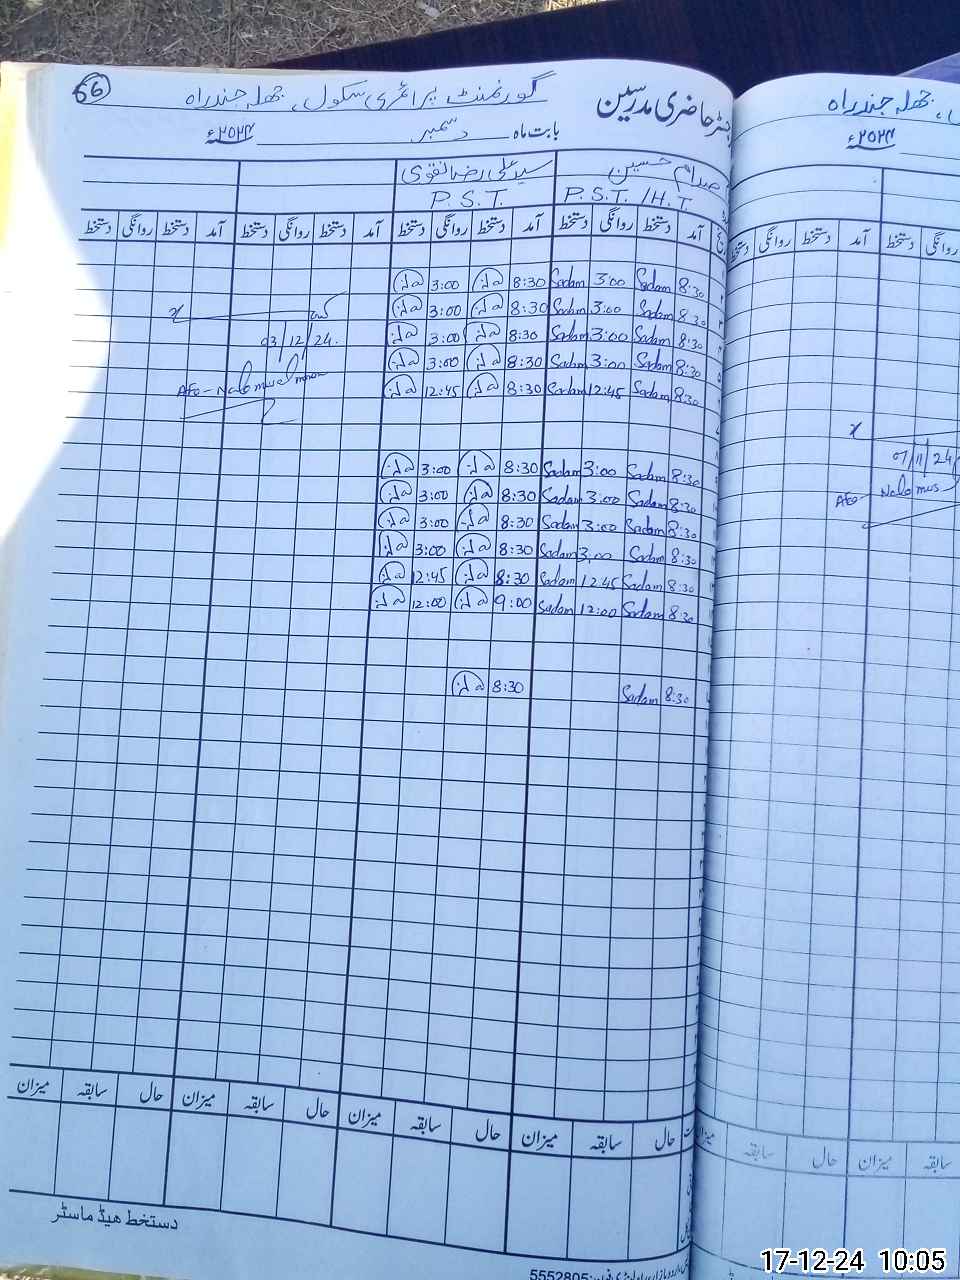 66
گورنمنٹ پرائمری سکول، جھلہ جندراہ
رجسٹر حاضری مدرسین
بابت ماہ دسمبر ۲۰۲۴ء
صدام حسین سید علی رضا نقوی
P.S.T. /H.T P.S.T.
آمد دستخط روانگی دستخط آمد دستخط روانگی دستخط آمد دستخط روانگی دستخط آمد دستخط روانگی دستخط
8:30 Sadam 3:00 Sadam 8:30 3:00
8:30 Sadam 3:00 Sadam 8:30 3:00
8:30 Sadam 3:00 Sadam 8:30 3:00
8:30 Sadam 3:00 Sadam 8:30 3:00
8:30 Sadam 12:45 Sadam 8:30 12:45
8:30 Sadam 3:00 Sadam 8:30 3:00
8:30 Sadam 3:00 Sadam 8:30 3:00
8:30 Sadam 3:00 Sadam 8:30 3:00
8:30 Sadam 3:00 Sadam 8:30 3:00
8:30 Sadam 12:45 Sadam 8:30 12:45
8:30 Sadam 12:00 Sadam 9:00 12:00
8:30 Sadam 8:30
03/12/24.
AEO-
حال سابقہ میزان حال سابقہ میزان حال سابقہ میزان حال سابقہ میزان
دستخط ہیڈ ماسٹر
5552805
جھلہ جندراہ
۲۰۲۴ء
دستخط روانگی دستخط آمد دستخط روانگی
07/11/24
AEO-
میزان سابقہ حال میزان سابقہ
17-12-24 10:05